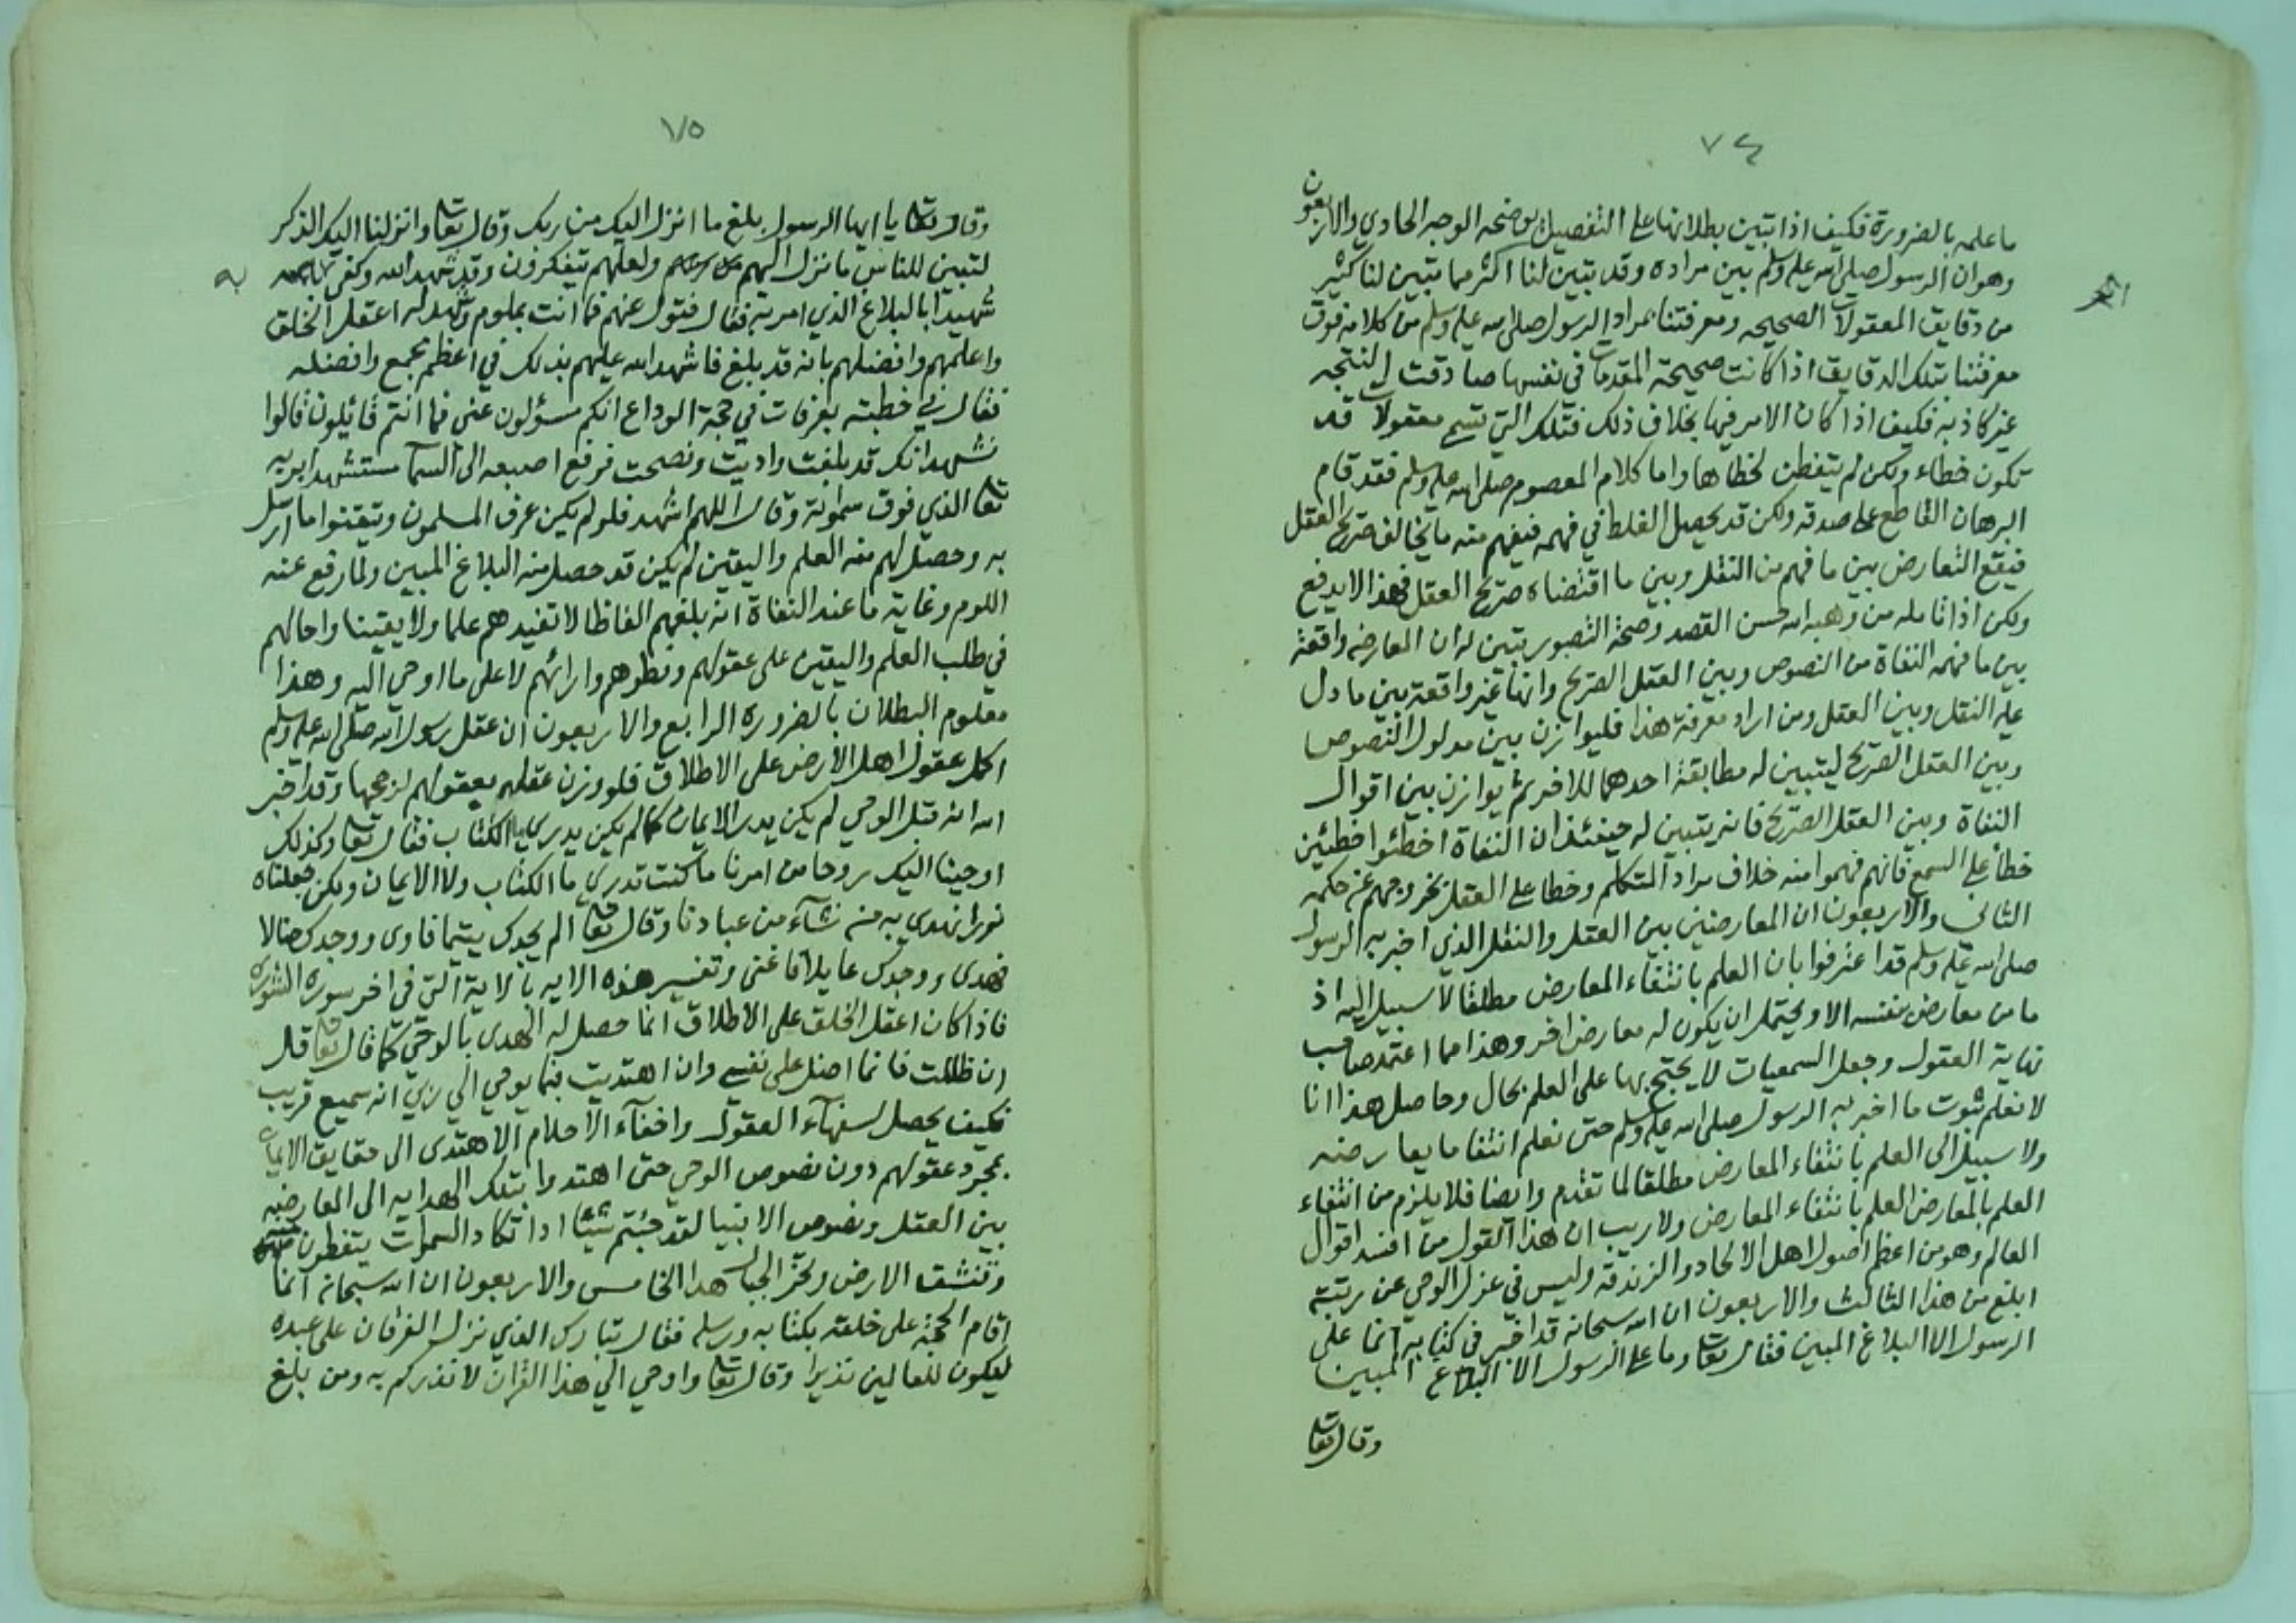 ٧٤
ما علمه بالضرورة فكيف اذا تبين بطلانها على التفصيل يوضحه الوجه الحادي والاربعون
وهو ان الرسول صلى الله عليه وسلم بين مراده وقد تبين لنا اكثر مما تبين لنا كثير
من دقايق المعقولات الصحيحه ومعرفتنا بمراد الرسول صلى الله عليه وسلم من كلامه فوق
معرفتنا بتلك الدقايق اذا كانت صحيحة المقدمات في نفسها صادقت النتجه
غير كاذبه فكيف اذا كان الامر فيها بخلاف ذلك فتلك التي تسمى معقولات قد
تكون خطاء ولكن لم يتفطن لخطاها واما كلام المعصوم صلى الله عليه وسلم فقد قام
البرهان القاطع على صدقه ولكن قد يحصل الغلط في فهمه فيفهم منه ما يخالف صريح العقل
فيقع التعارض بين ما فهم من النقل وبين ما اقتضاه صريح العقل فهذا لا يدفع
ولكن اذا تامله من وهبه الله حسن القصد وصحة التصور تبين له ان المعارضه واقعة
بين ما فهمه النفاة من النصوص وبين العقل الصريح وانها غير واقعة بين ما دل
عليه النقل وبين العقل ومن اراد معرفة هذا فليوازن بين مدلول النصوص
وبين العقل الصريح ليتبين له مطابقة احدهما للاخر ثم يوازن بين اقوال
النفاة وبين العقل الصريح فانه يتبين له حينئذ ان النفاة اخطئوا خطئين
خطأ على السمع فانهم فهموا منه خلاف مراد المتكلم وخطا على العقل بخروجهم عن حكمه
الثانى والاربعون ان المعارضين بين العقل والنقل الذي اخبر به الرسول
صلى الله عليه وسلم قد اعترفوا بان العلم بانتفاء المعارض مطلقا لا سبيل اليه اذ
ما من معارض نفسه الا ويحتمل ان يكون له معارض اخر وهذا مما اعتمد صاحب
نهاية العقول وجعل السمعيات لا يحتج بها على العلم بحال وحاصل هذا انا
لا نعلم ثبوت ما اخبر به الرسول صلى الله عليه وسلم حتى نعلم انتفا ما يعارضه
ولا سبيل الى العلم بانتفاء المعارض مطلقا لما تقدم وايضا فلا يلزم من انتفاء
العلم بالمعارض العلم بانتفاء المعارض ولا ريب ان هذا القول من افسد اقوال
العالم وهو من اعظم اصول اهل الالحاد والزندقة وليس في عزل الوحي عن رتبته
ابلغ من هذا الثالث والاربعون ان الله سبحانه قد اخبر في كتابه انما على
الرسول الا البلاغ المبين فقال تعا وما على الرسول الا البلاغ المبين
وقال تعا
٧٥
وقال تعا يا ايها الرسول بلغ ما انزل اليك من ربك وقال تعا وانزلنا اليك الذكر
لتبين للناس ما نزل اليهم ولعلهم يتفكرون وقد شهد الله وكفى به
شهيدا بالبلاغ الذي امر به فقال فتول عنهم فما انت بملوم وشهد له اعقل الخلق
واعلمهم وافضلهم بانه قد بلغ فاشهد الله عليهم بذلك في اعظم مجمع وافضله
فقال في خطبته بعرفات في حجة الوداع انكم مسؤلون عنى فما انتم قائلون قالوا
نشهد انك قد بلغت واديت ونصحت فرفع اصبعه الى السما مستشهدا بربه
تعا الذي فوق سمواته وقال اللهم اشهد فلو لم يكن عرف المسلمون وتيقنوا ما ارسل
به وحصل لهم منه العلم واليقين لم يكن قد حصل منه البلاغ المبين ولما رفع عنه
اللوم وغاية ما عند النفاة انه بلغهم الفاظا لا تفيدهم علما ولا يقينا واحالهم
في طلب العلم واليقين على عقولهم ونظرهم وارائهم لا على ما اوحي اليه وهذا
معلوم البطلان بالضروره الرابع والاربعون ان عقل رسول الله صلى الله عليه وسلم
اكمل عقول اهل الارض على الاطلاق فلو وزن عقله بعقولهم لرجحها وقد اخبر
الله انه قبل الوحي لم يكن يدر الايمان كما لم يكن يدري ما الكتاب فقال تعا وكذلك
اوحينا اليك روحا من امرنا ما كنت تدري ما الكتاب ولا الايمان ولكن جعلناه
نورا نهدي به من نشآء من عبادنا وقال تعا الم يجدك يتيما فاوى ووجدك ضالا
فهدى ووجدك عايلا فاغنى وتفسير هذه الايه بالاية التي في اخر سورة الشورى
فاذا كان اعقل الخلق على الاطلاق انما حصل له الهدى بالوحي كما قال تعا قل
ان ظللت فانما اضل على نفسي وان اهتديت فبما يوحي الي ربي انه سميع قريب
فكيف يحصل لسفهآء العقول واخفآء الاحلام الاهتدى الى حقايق الايمان
بمجرد عقولهم دون نصوص الوحي حتى اهتدوا بتلك الهدايه الى المعارضه
بين العقل ونصوص الانبيا لقد جئتم شيئا ادا تكاد السموات يتفطرن منه
وتنشق الارض وتخر الجبال هدا الخامس والاربعون ان الله سبحانه انما
اقام الحجة على خلقه بكتابه ورسله فقال تبارك الذي نزل الفرقان على عبده
ليكون للعالمين نذيرا وقال تعا واوحي الي هذا القران لانذركم به ومن بلغ